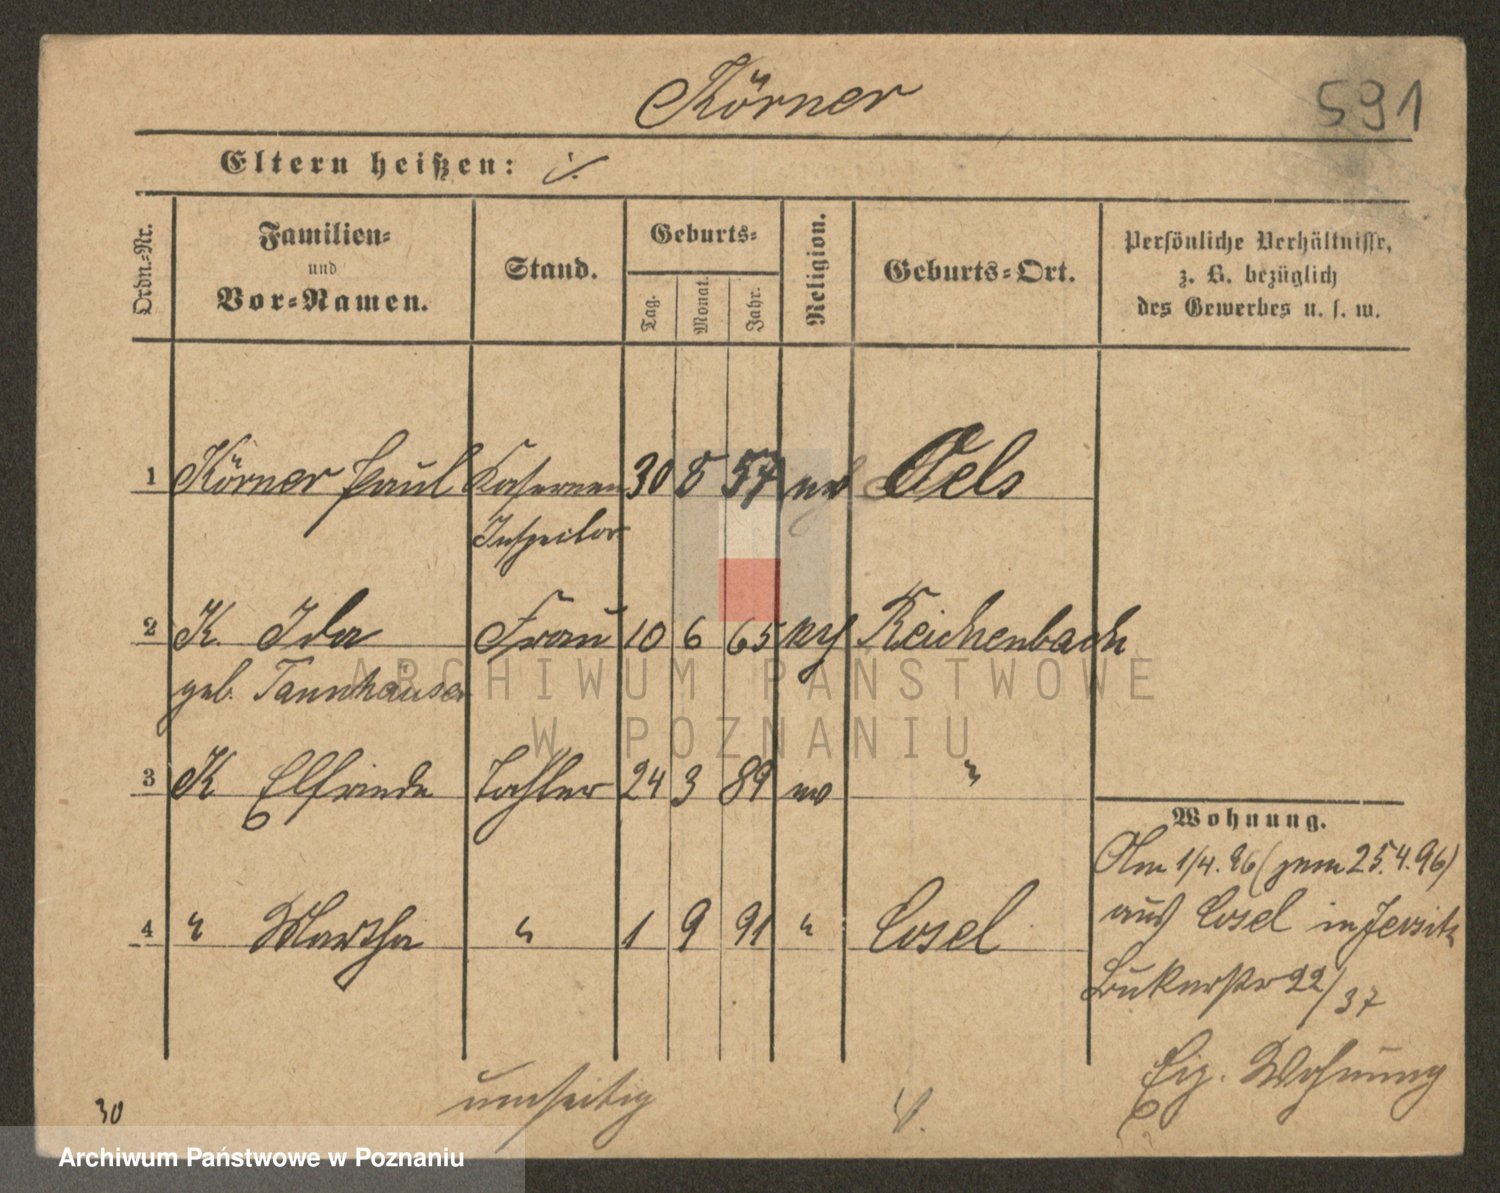 Körner
591
Eltern heißen: ./.
Ordn.-Nr.
Familien-
und
Vor-Namen.
Stand.
Geburts-
Tag.
Monat.
Jahr.
Religion.
Geburts-Ort.
Persönliche Verhältnisse,
z. B. bezüglich
des Gewerbes u. s. w.
1 Körner Paul Kasernen 30 8 57 ev Oels
Inspector
2 K. Ida Frau 10 6 65 Reichenbach
geb. Tannhäuser
3 K Elfriede Tochter 24 3 89 ev "
4 " Martha " 1 9 91 " Cosel
Wohnung.
Am 1/4. 96 (gem 25.4.96)
aus Cosel in Jersitz
Bukerstr 22/37
Eig. Wohnung
umseitig
30
ARCHIWUM PAŃSTWOWE
W POZNANIU
Archiwum Państwowe w Poznaniu